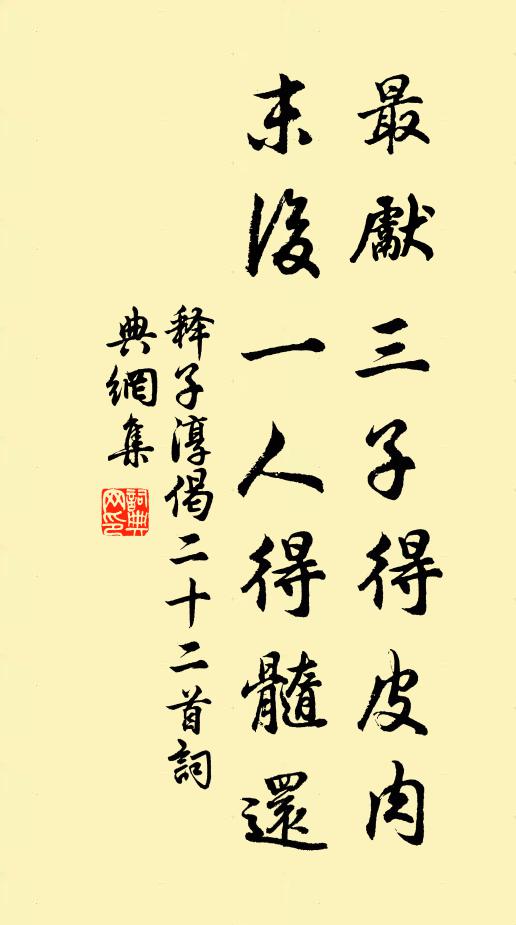 最獻三子得皮肉
末後一人得髓還
释子淳偈二十二首詞
典網集
詞典網印